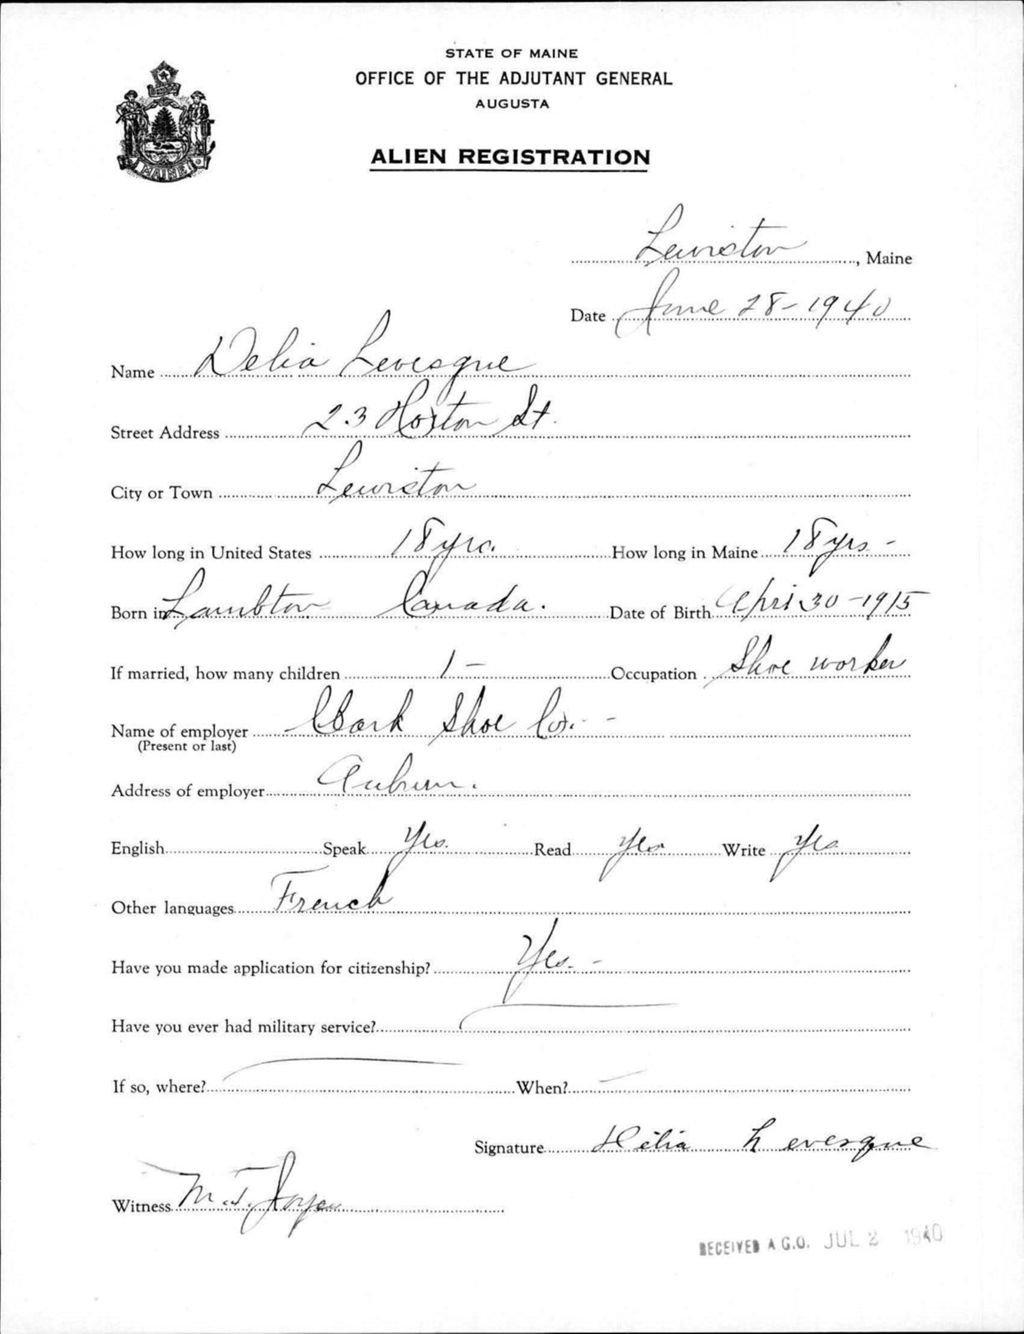 STATE OF MAINE
OFFICE OF THE ADJUTANT GENERAL
AUGUSTA
ALIEN REGISTRATION
MAINE
Lewiston, Maine
Date June 28-1940
Name Delia Levesque
Street Address 23 Horton St.
City or Town Lewiston
How long in United States 18 yrs. How long in Maine 18 yrs -
Born in Lambton Canada. Date of Birth April 30-1915
If married, how many children 1- Occupation Shoe worker
Name of employer Clark Shoe Co. -
(Present or last)
Address of employer Auburn.
English Speak Yes. Read Yes Write Yes
Other languages French
Have you made application for citizenship? Yes. -
Have you ever had military service?
If so, where? When?
Signature Delia Levesque
Witness M. J.
RECEIVED A.G.O. JUL 2 1940